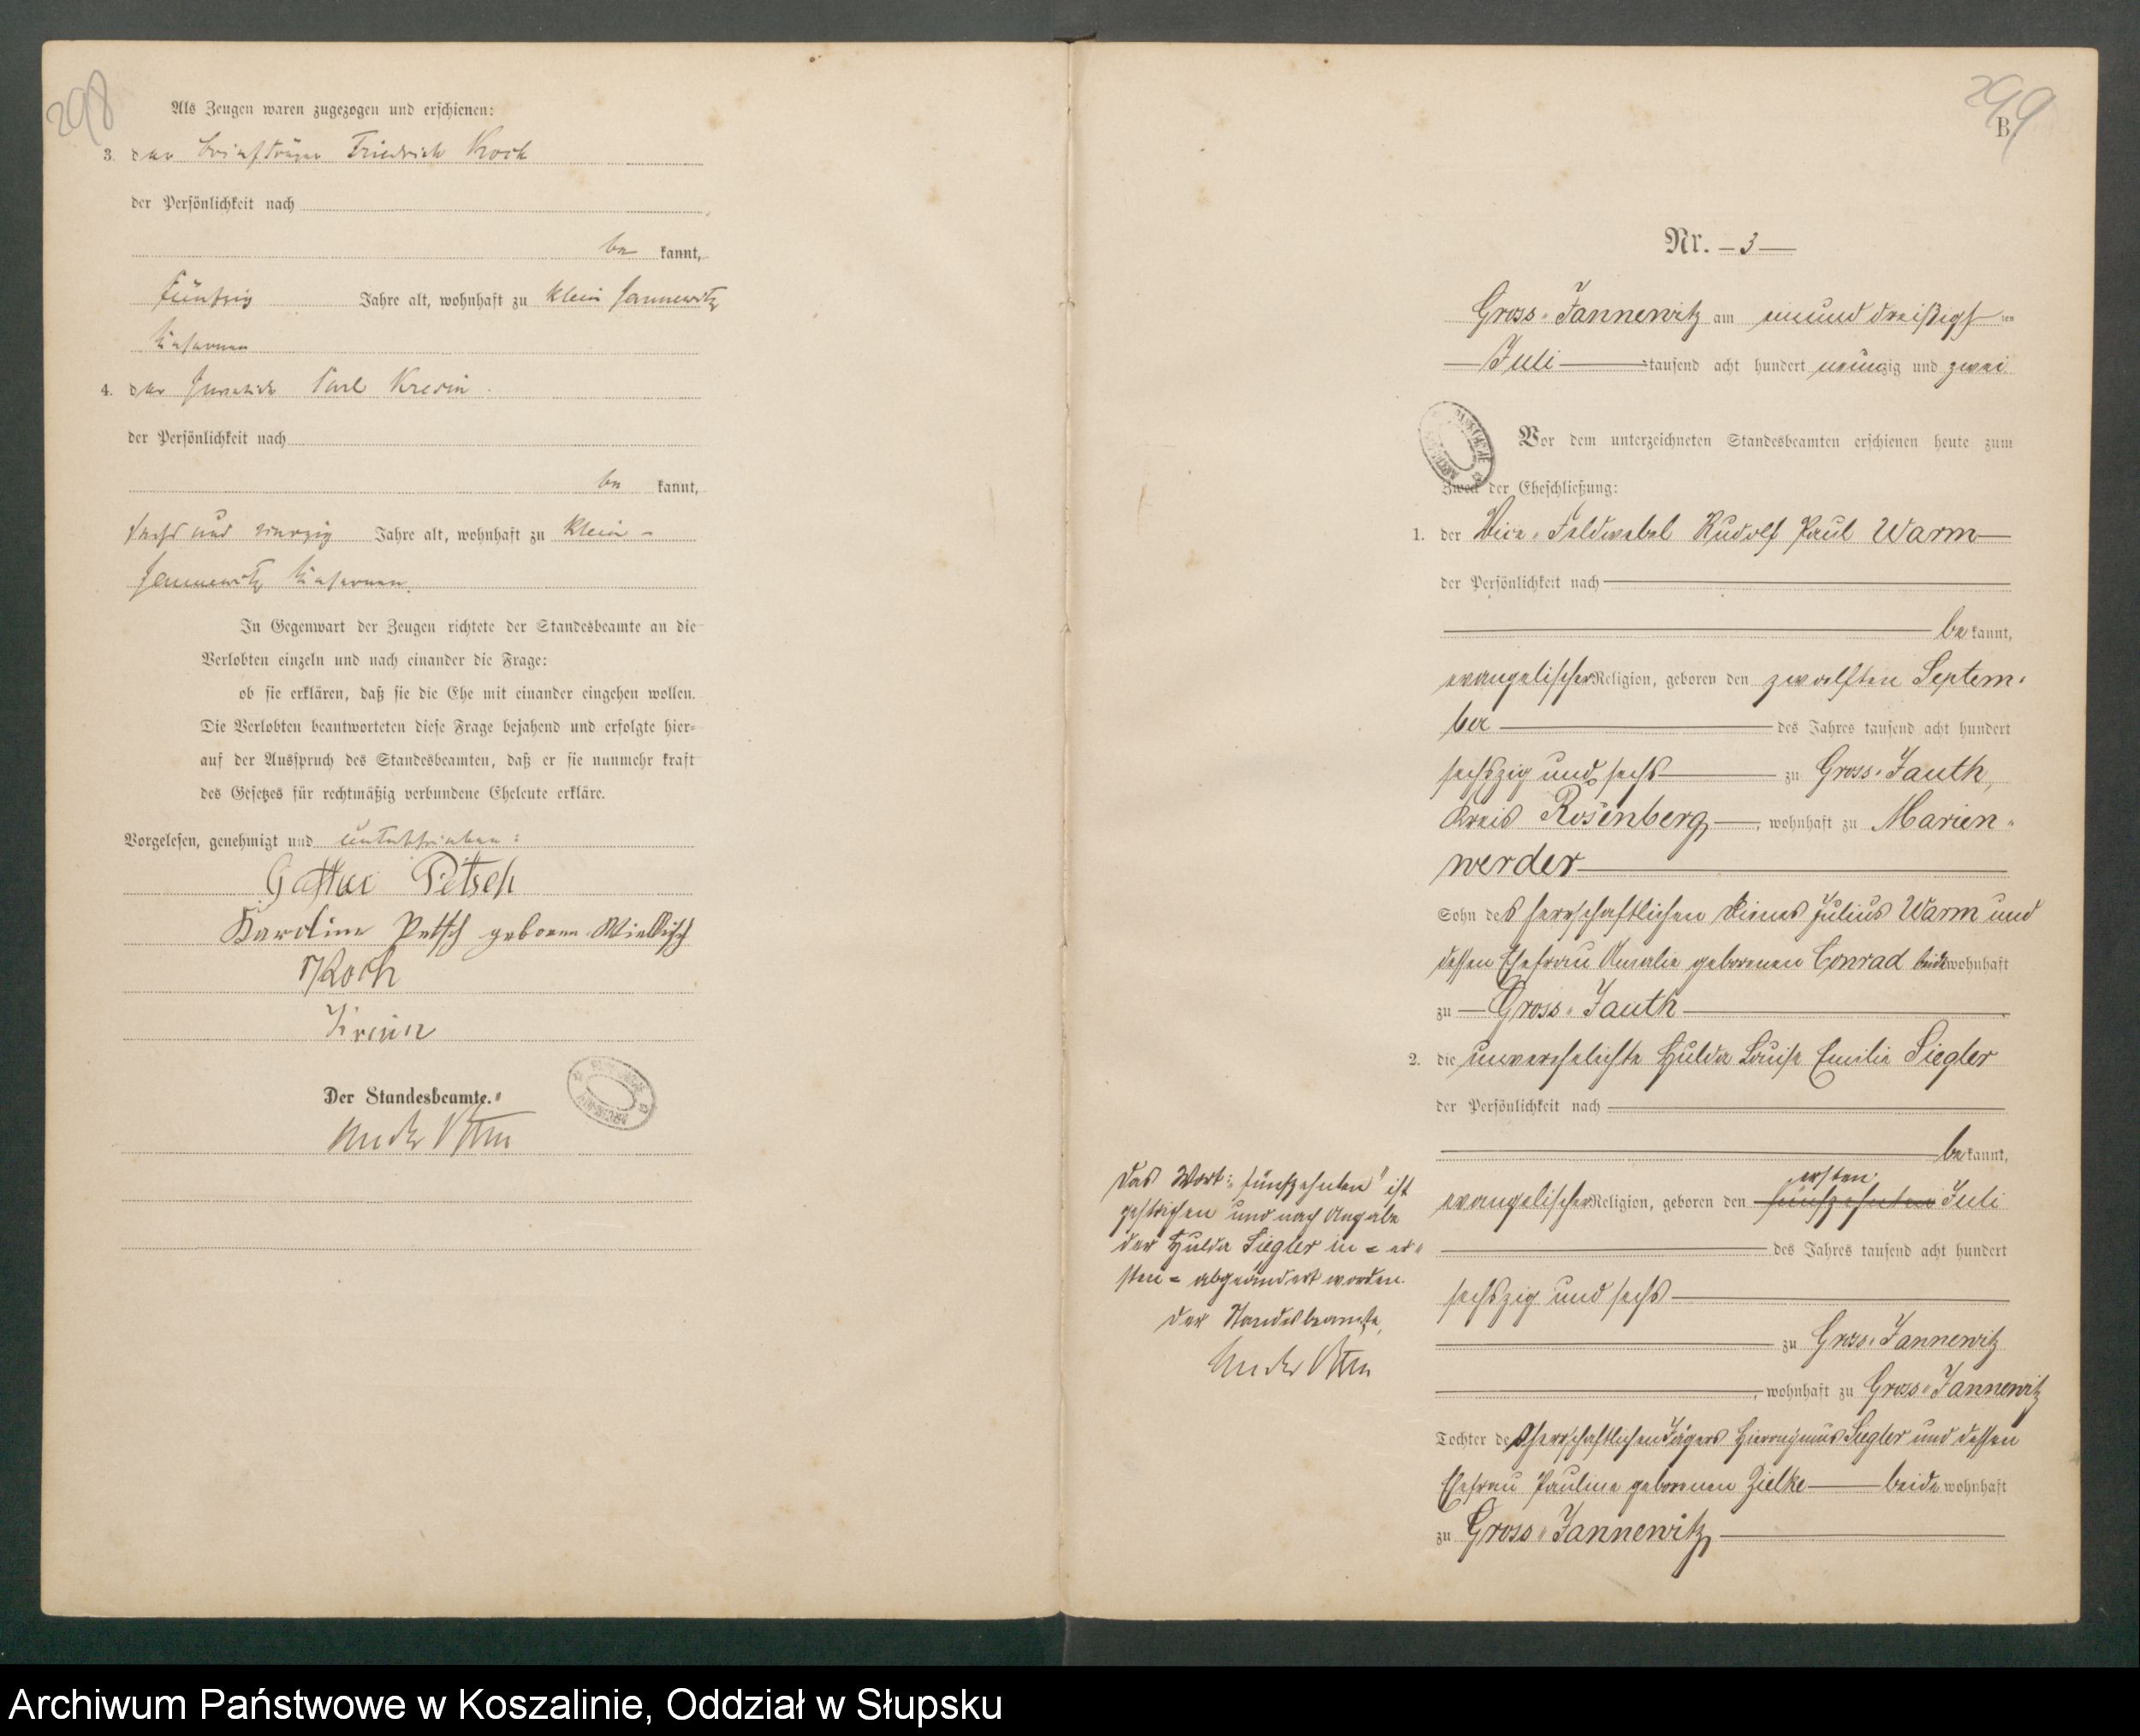 298
Als Zeugen waren zugezogen und erschienen:
3. der Briefträger Friedrich Koch
der Persönlichkeit nach
be kannt,
fünfzig Jahre alt, wohnhaft zu Klein Jannewitz
4. der Carl Kresin
der Persönlichkeit nach
be kannt,
sechs und vierzig Jahre alt, wohnhaft zu Klein-
Jannewitz
In Gegenwart der Zeugen richtete der Standesbeamte an die
Verlobten einzeln und nach einander die Frage:
ob sie erklären, daß sie die Ehe mit einander eingehen wollen.
Die Verlobten beantworteten diese Frage bejahend und erfolgte hier-
auf der Ausspruch des Standesbeamten, daß er sie nunmehr kraft
des Gesetzes für rechtmäßig verbundene Eheleute erkläre.
Vorgelesen, genehmigt und unterschrieben:
Petsch
Karoline Petsch geborene
Koch
Kresin
Der Standesbeamte.
299
B.
Nr. – 3 –
Gross-Jannewitz am einund dreißigsten
Juli tausend acht hundert neunzig und zwei
Vor dem unterzeichneten Standesbeamten erschienen heute zum
Zweck der Eheschließung:
1. der Vice-Feldwebel Rudolf Paul Warm
der Persönlichkeit nach
be kannt,
evangelischer Religion, geboren den zwoelften Septem-
ber des Jahres tausend acht hundert
sechszig und sechs zu Gross-Jauth,
Kreis Rosenberg, wohnhaft zu Marien-
werder
Sohn des herrschaftlichen Dieners Julius Warm und
dessen Ehefrau Amalie geborenen Conrad beide wohnhaft
zu Gross-Jauth
2. die unverehelichte Hulda Louise Emilie Siegler
der Persönlichkeit nach
be kannt,
ersten
evangelischer Religion, geboren den fünfzehnten Juli
des Jahres tausend acht hundert
sechszig und sechs
zu Gross-Jannewitz
, wohnhaft zu Gross-Jannewitz
Tochter des herrschaftlichen Jägers Hieronymus Siegler und dessen
Ehefrau Pauline geborenen Zielke beide wohnhaft
zu Gross-Jannewitz
Das Wort: "fünfzehnten" ist
gestrichen und nach Angabe
der Hulda Siegler in = er-
sten = abgeändert worden.
Der Standesbeamte,
Archiwum Państwowe w Koszalinie, Oddział w Słupsku